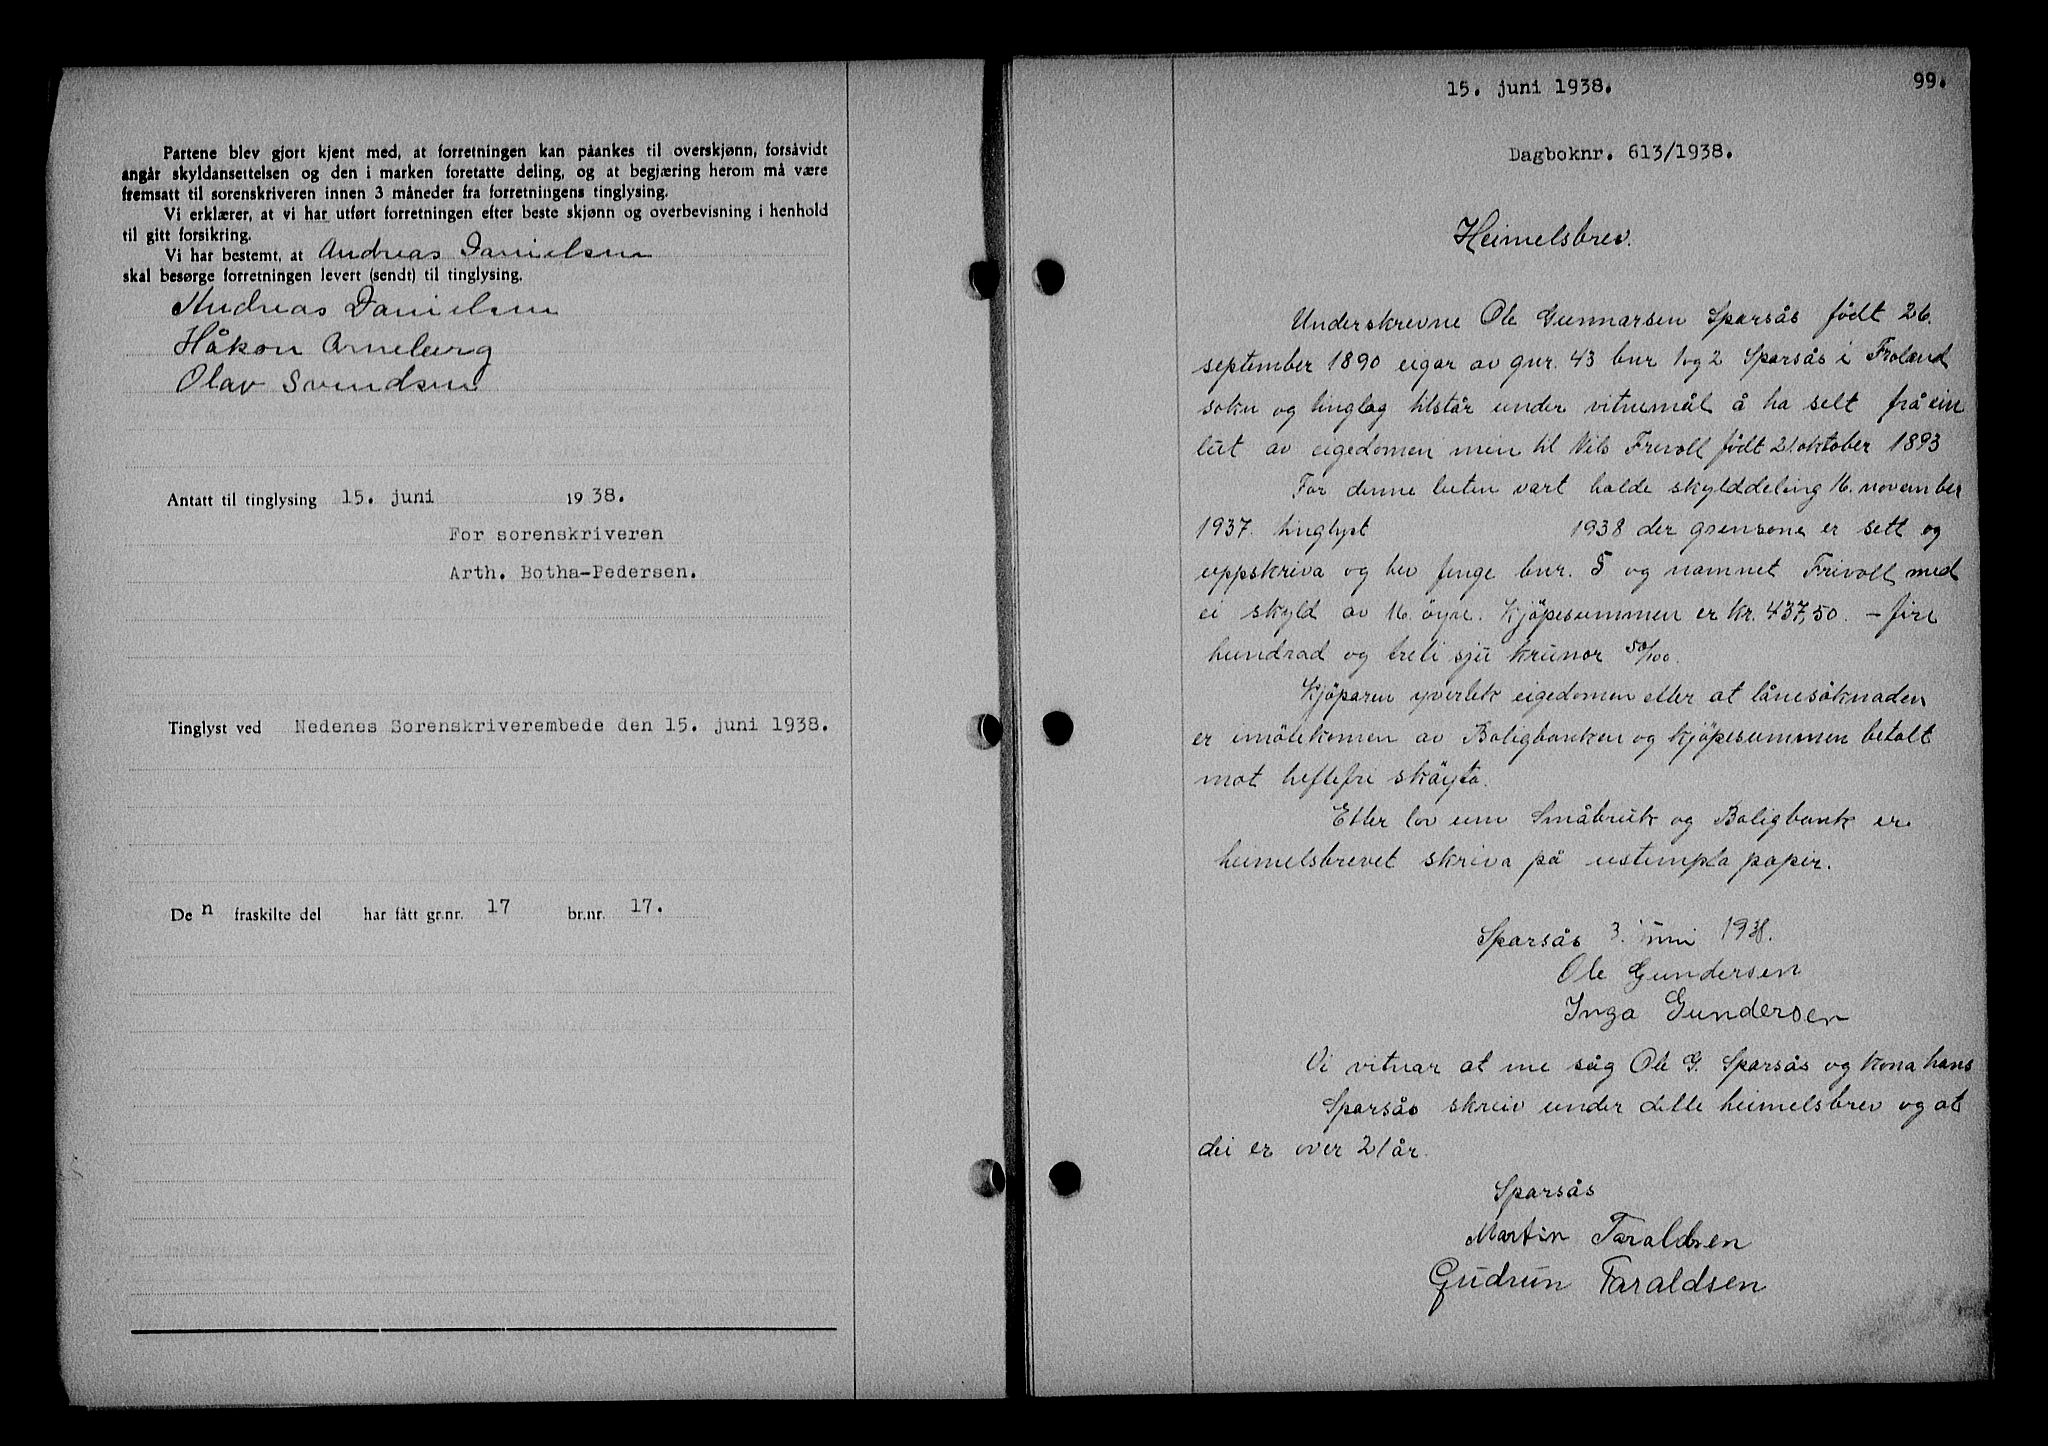 Partene blev gjort kjent med, at forretningen kan påankes til overskjønn, forsåvidt
angår skyldansettelsen og den i marken foretatte deling, og at begjæring herom må være
fremsatt til sorenskriveren innen 3 måneder fra forretningens tinglysing.
Vi erklærer, at vi har utført forretningen efter beste skjønn og overbevisning i henhold
til gitt forsikring.
Vi har bestemt, at Andreas Danielsen
skal besørge forretningen levert (sendt) til tinglysing.
Andreas Danielsen
Håkon Arneberg
Olav Svendsen
Antatt til tinglysing 15. juni 1938.
For sorenskriveren
Arth. Botha-Pedersen.
Tinglyst ved Nedenes Sorenskriverembede den 15. juni 1938.
Den fraskilte del har fått gr.nr. 17 br.nr. 17.
15. juni 1938. 99.
Dagboknr. 613/1938.
Heimelsbrev.
Underskrevne Ole Gunnarsen Sparsås født 26.
september 1890 eigar av gnr. 43 bnr 1og2 Sparsås i Froland
sokn og tinglag tilstår under vitnemål å ha selt frå ein
lut av eigedomen min til Nils Frivoll født 21.oktober 1893
For denne luten vart halde skylddeling 16. november
1937. tinglyst 1938 der grensone er sett og
uppskriva og hev fenge bnr. 5 og namnet Frivoll med
ei skyld av 16. öyre. Kjöpesummen er kr. 437,50. – fire
hundrad og treti sju krunor 50/100.
Kjöparen yvertek eigedomen etter at lånesöknaden
er imötekomen av Boligbanken og kjöpesummen betalt
mot heftefri sköyta.
Etter lov um Småbruk og Boligbank er
heimelsbrevet skriva på ustempla papir.
Sparsås 3. juni 1938.
Ole Gundersen
Inga Gundersen
Vi vitnar at me såg Ole G. Sparsås og kona hans
Sparsås skreiv under dette heimelsbrev og at
dei er over 21 år.
Sparsås
Martin Taraldsen
Gudrun Taraldsen